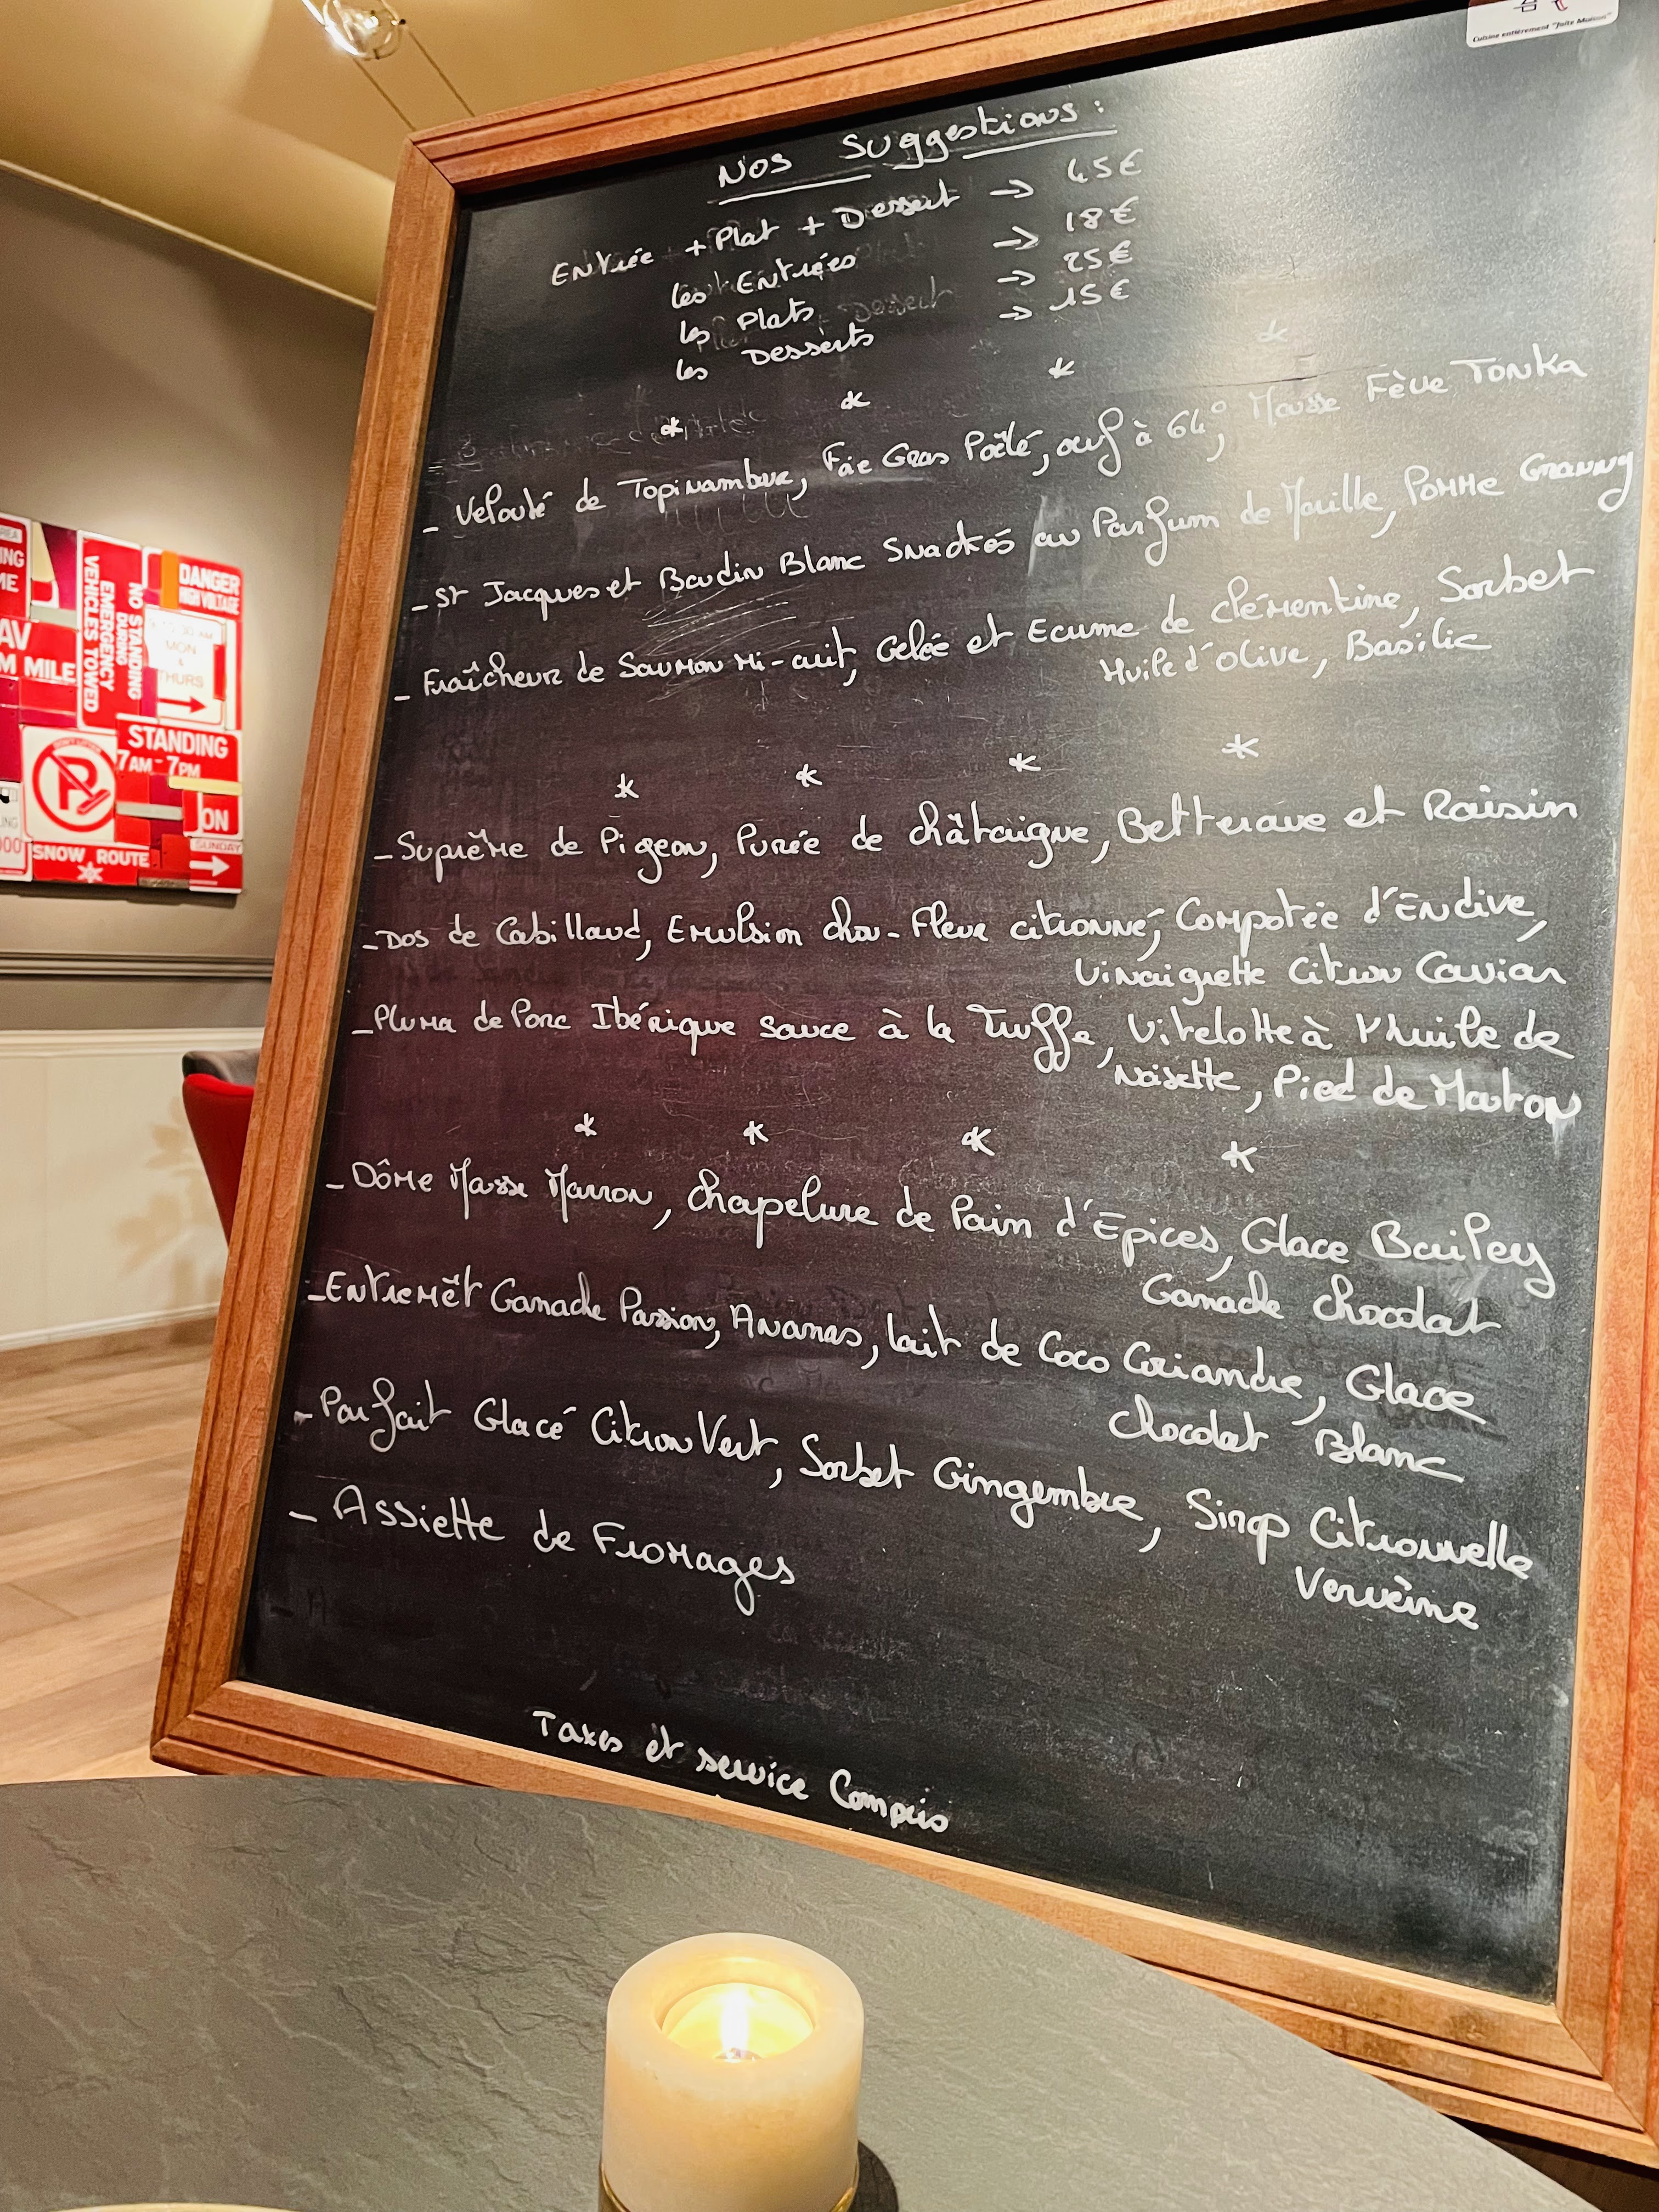 Cuisine entièrement "faite Maison"
Nos Suggestions :
Entrée + Plat + Dessert → 45€
les Entrées → 18€
les Plats → 25€
les Desserts → 15€
* * * *
- Velouté de Topinambur, Foie Gras Poêlé, œuf à 64°, Mousse Fève Tonka
- St Jacques et Boudin Blanc Snackés au Parfum de Morille, Pomme Granny
- Fraîcheur de Saumon Mi-cuit, Gelée et Ecume de clémentine, Sorbet
Huile d'olive, Basilic
* * * *
- Suprême de Pigeon, Purée de châtaigne, Betterave et Raisin
- Dos de Cabillaud, Emulsion chou-Fleur citronné, Compotée d'Endive,
Vinaigrette Citron Caviar
- Pluma de Porc Ibérique sauce à la Truffe, Vitelotte à l'huile de
Noisette, Pied de Mouton
* * * *
- Dôme Mousse Marron, chapelure de Pain d'Epices, Glace Bailey
Ganache chocolat
- Entremêt Ganache Passion, Ananas, lait de Coco Coriandre, Glace
chocolat Blanc
- Parfait Glacé Citron Vert, Sorbet Gingembre, Sirop Citronnelle
Verveine
- Assiette de Fromages
Taxes et service Compris
DANGER
HIGH VOLTAGE
NO STANDING
DURING
EMERGENCY
VEHICLES TOWED
MON
&
THURS
AV
M MILE
STANDING
7AM-7PM
ON
SUNDAY
SNOW ROUTE